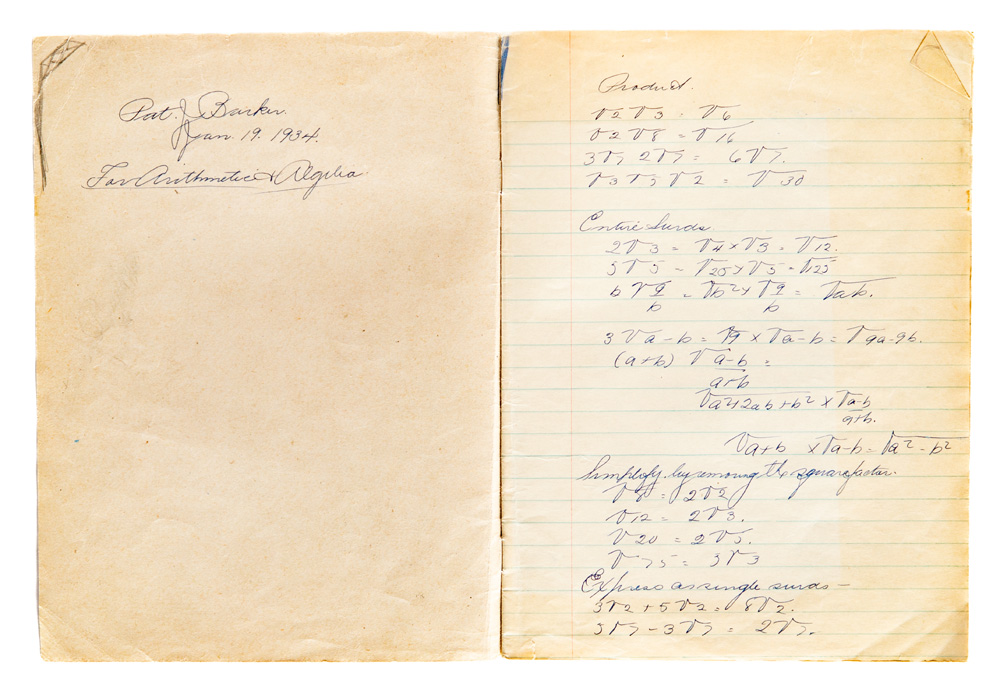 Pat. J. Barker.
Jan. 19. 1934.
For Arithmetic & Algebra
Product.
√2 √3 = √6
√2 √8 = √16
3√7 2√7 = 6√7.
√3 √5 √2 = √30
Entire Surds
2√3 = √4 × √3 = √12.
5√5 = √25 × √5 = √125
b √a/b = √b² × √a/b = √ab.
3 √a-b = √9 × √a-b = √9a-9b.
(a+b) √a-b/a+b =
√a²+2ab+b² × √a-b/a+b.
√a+b × √a-b = √a² - b²
Simplify by removing the square factor.
√8 = 2√2
√12 = 2√3.
√20 = 2√5.
√75 = 5√3
Express as single surds –
3√2 + 5√2 = 8√2.
5√7 - 3√7 = 2√7.